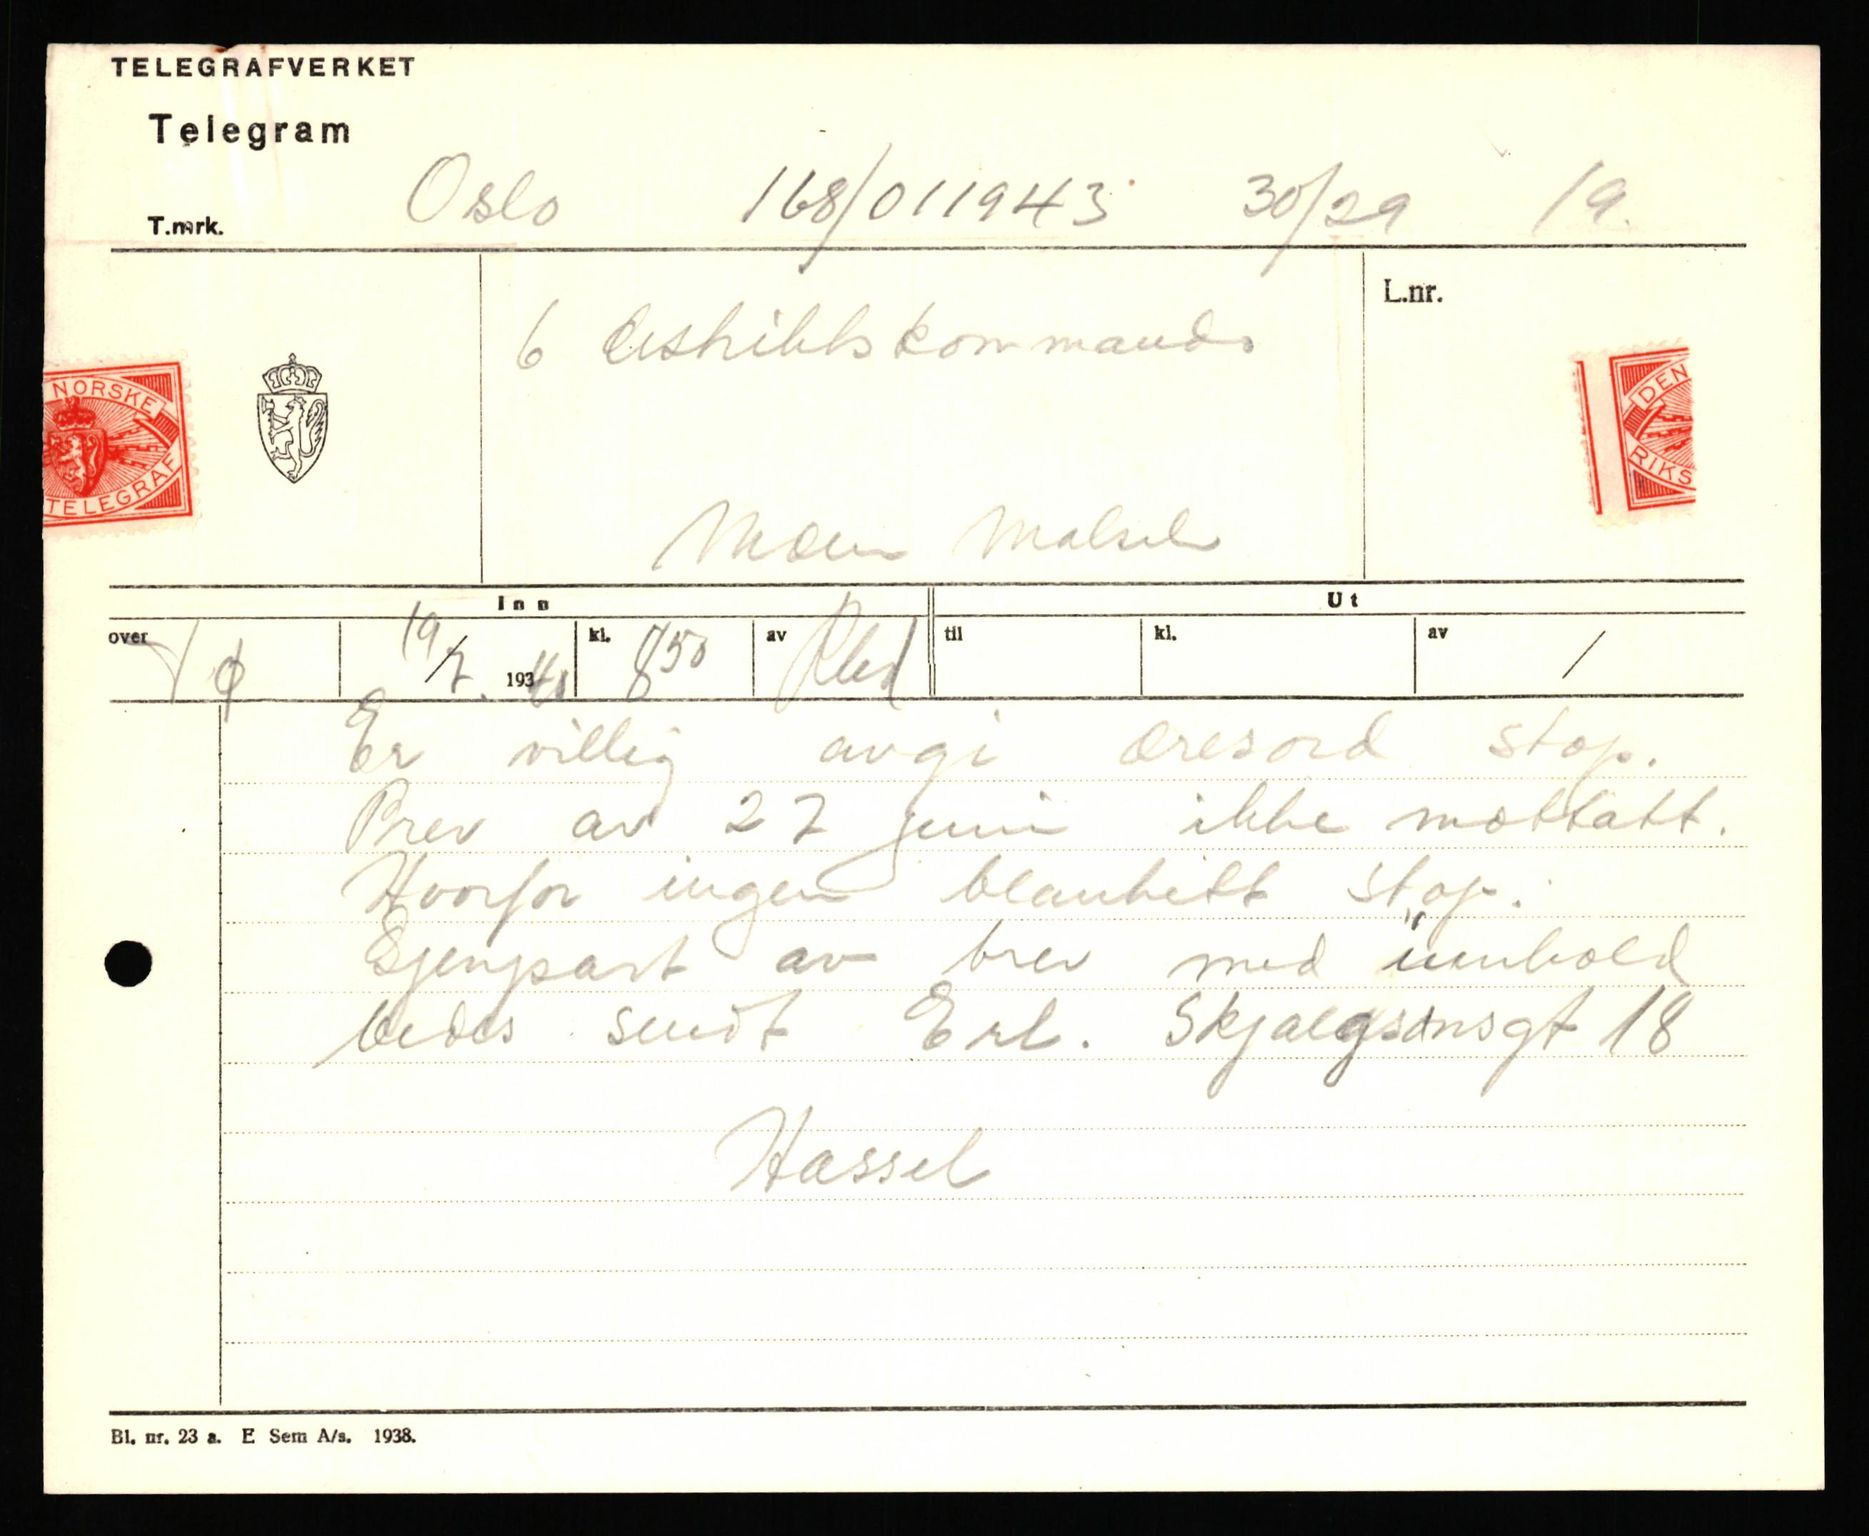 TELEGRAFVERKET
Telegram
T.mrk.
Oslo 168/011943 30/29 19.
6 distriktskommando
L.nr.
NORSKE
TELEGRAF
DEN
RIKS
Moen Målselv
Inn
Ut
over 19/7. 1940 kl. 850 av
til kl. av /
Er villig avgi æresord stop.
Brev av 27 juni ikke mottatt.
Hvorfor ingen blankett stop.
Gjenpart av brev med innhold
bedes sendt Erl. Skjalgsønsgt 18
Hassel
Bl. nr. 23 a. E Sem A/s. 1938.